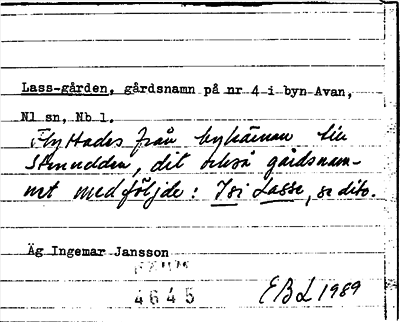 Lass-gården, gårdsnamn på nr 4 i byn Avan,
Nl sn, Nb l.
Flyttades från bykärnan till
Strandudden, dit också gårdsnam-
net medföljde: Isi Lasse, se dito.
Äg Ingemar Jansson
4645
EBL 1989